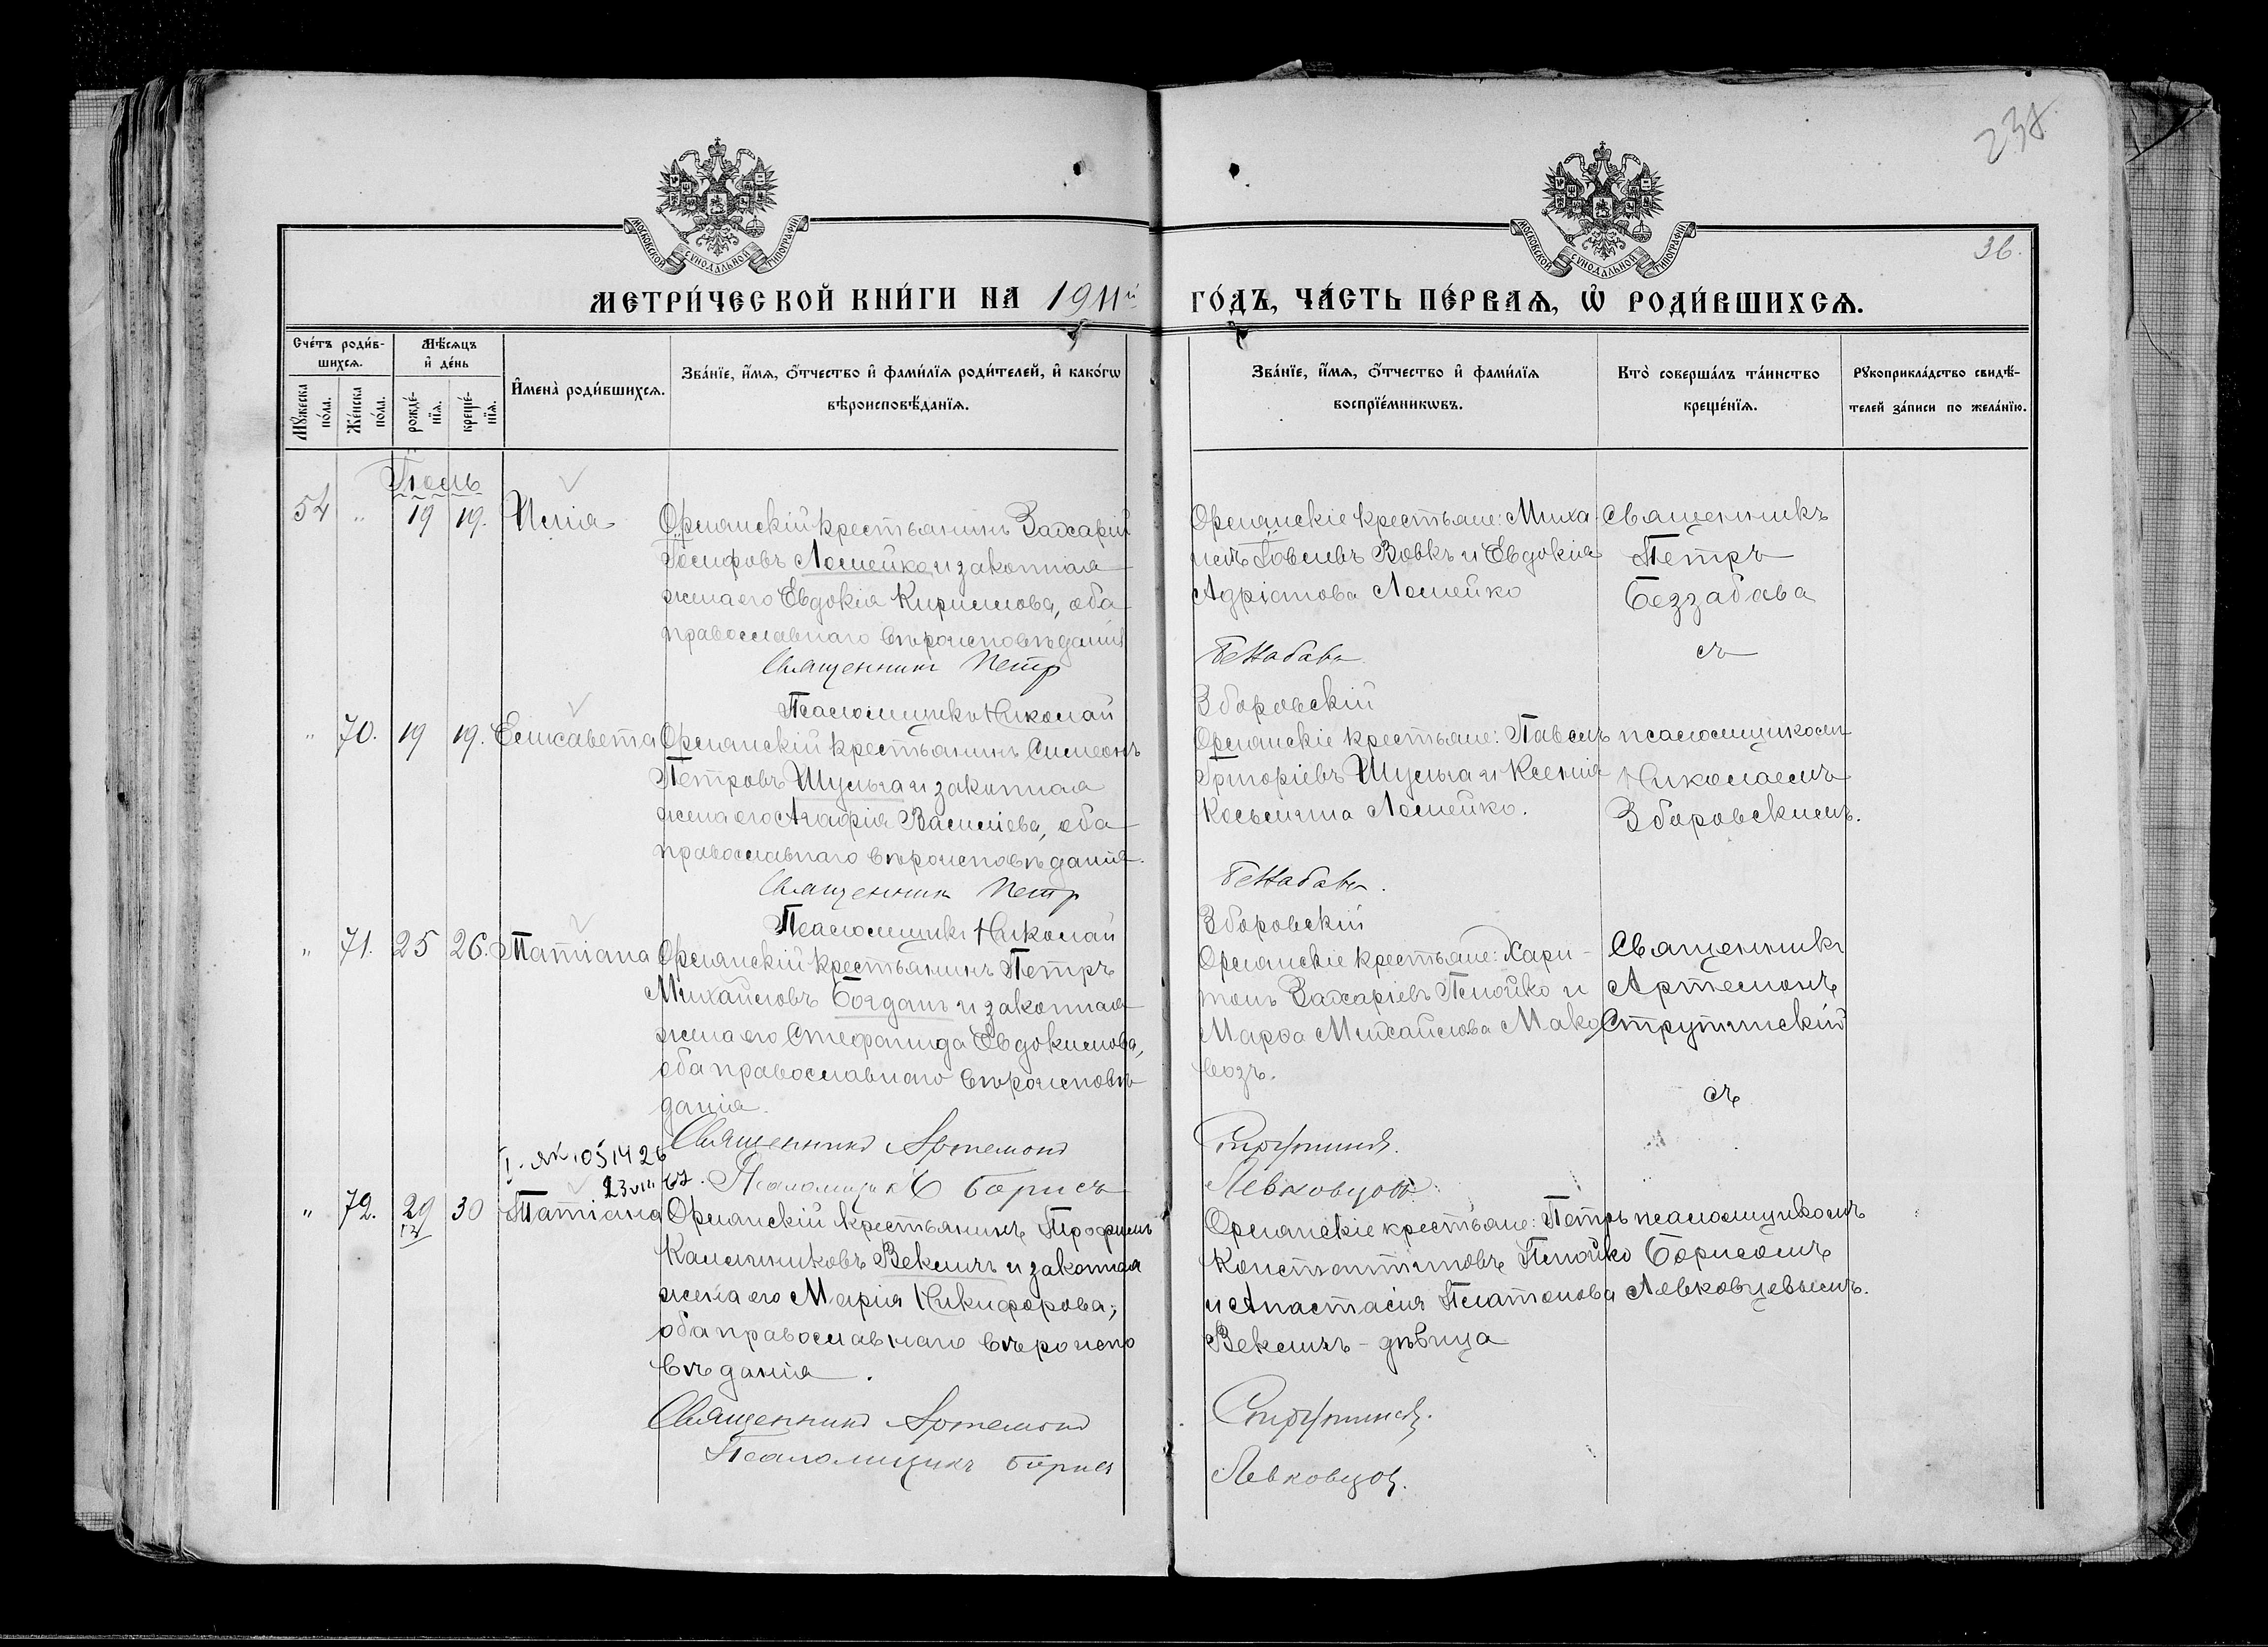 238
36.
МОСКОВСКОЙ СѴНОДАЛЬНОЙ ТИПОГРАФІИ
МОСКОВСКОЙ СѴНОДАЛЬНОЙ ТИПОГРАФІИ
МЕТРИ́ЧЕСКОЙ КНИ́ГИ НА 1911й ГО́ДЪ, ЧА́СТЬ ПЕ́РВАѦ, Ѡ҆ РОДИ́ВШИХСѦ.
Сче́тъ роди́в-
шихсѧ.
Мꙋ́жеска по́ла.
Же́нска по́ла.
Мѣ́сѧцъ
и҆ де́нь
рожде́-
нїѧ.
креще́-
нїѧ.
И҆мена̀ роди́вшихсѧ.
Зва́нїе, и҆́мѧ, ѻ҆́тчество и҆ фами́лїѧ роди́телей, и҆ како́гѡ
вѣроисповѣ́данїѧ.
Зва́нїе, и҆́мѧ, ѻ҆́тчество и҆ фами́лїѧ
воспрїе́мникѡвъ.
Кто̀ соверша́лъ та́инство
креще́нїѧ.
Рꙋкоприкла́дство свидѣ́-
телей за́писи по жела́нїю.
Іюль
54 " 19 19. Илія
Орлянскій крестьянинъ Захарій
Іосифовъ Ломейко и законная
жена его Евдокія Кириллова, оба
православнаго вѣроисповѣданія
Священникъ Петр
Псаломщикъ Николай
Орлянскіе крестьяне: Миха
илъ Іовлевъ Вовкъ и Евдокія
Адріанова Ломейко
Беззабава
Зборовскій
Священникъ
Петръ
Беззабава
съ
" 70. 19 19. Елисавета
Орлянскій крестьянинъ Симеонъ
Петровъ Шульга и законная
жена его Агафія Василіева, оба
православнаго вѣроисповѣданія.
Священник Петр
Псаломщикъ Николай
Орлянскіе крестьяне: Павелъ
Григоріевъ Шульга и Ксенія
Косьмина Ломейко.
Беззабава.
Зборовскій
псаломщикомъ
Николаемъ
Зборовскимъ.
" 71. 25 26. Татіана
Орлянскій крестьянинъ Петръ
Михайловъ Богданъ и законная
жена его Стефанида Евдокимова,
оба православнаго вѣроисповѣ
данія.
Священникъ Артемонъ
Псаломщикъ Борисъ
Орлянскіе крестьяне: Хари-
тонъ Захаріевъ Плойко и
Марѳа Михайлова Мако
возъ.
Левковцов
Священникъ
Артемонъ
Струтинскій
съ
23 VIII 67.
" 72. 29 30 Татіана
Орлянскій крестьянинъ Трофимъ
Калинниковъ Векличъ и законная
жена его Марія Никифорова,
оба православнаго вѣроиспо
вѣданія.
Священникъ Артемонъ
Псаломщикъ Борисъ
Орлянскіе крестьяне: Петръ
Константиновъ Плойко
и Анастасія Платонова
Векличъ - дѣвица
Левковцов.
псаломщикомъ
Борисомъ
Левковцевымъ.